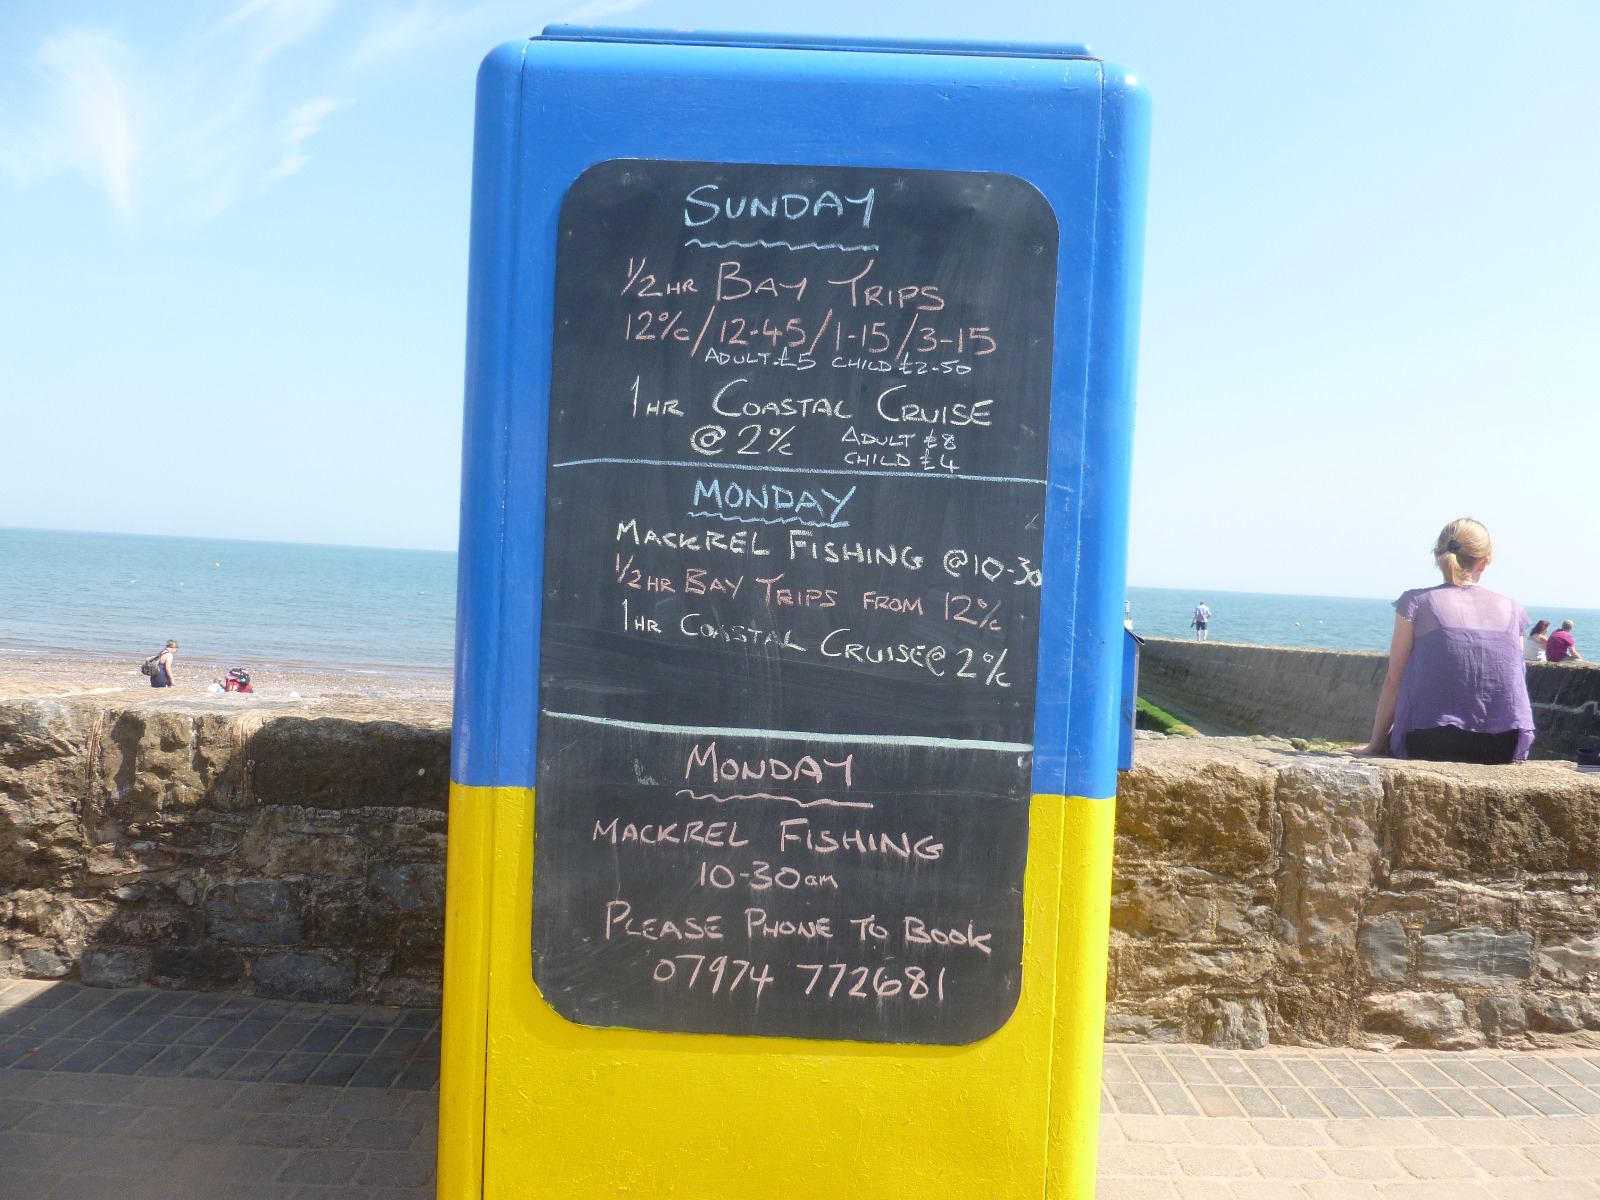 SUNDAY
1/2HR BAY TRIPS
12%c/12-45/1-15/3-15
ADULT £5 CHILD £2-50
1HR COASTAL CRUISE
@ 2%c ADULT £8
CHILD £4
MONDAY
MACKREL FISHING @10-30
1/2HR BAY TRIPS FROM 12%c
1HR COASTAL CRUISE@ 2%c
MONDAY
MACKREL FISHING
10-30am
PLEASE PHONE TO BOOK
07974 772681